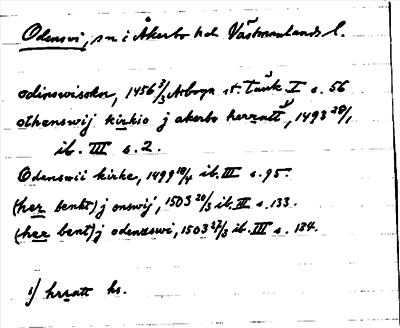 Odensvi, sn i Åkerbo hd Västmanlands l.
odinswisokn, 1456 7/3 Arboga st. tänk I s. 56
othenswij kirkio j akerbo herzatt 1), 1493 28/1
ib. III s. 2.
Odenswii kirke, 1499 10/4 ib. III s. 95.
(her benkt) j onswij, 1503 20/3 ib. III s. 133.
(her bent) j odenzswi, 1503 27/3 ib. III s. 134.
1) hrzatt hs.